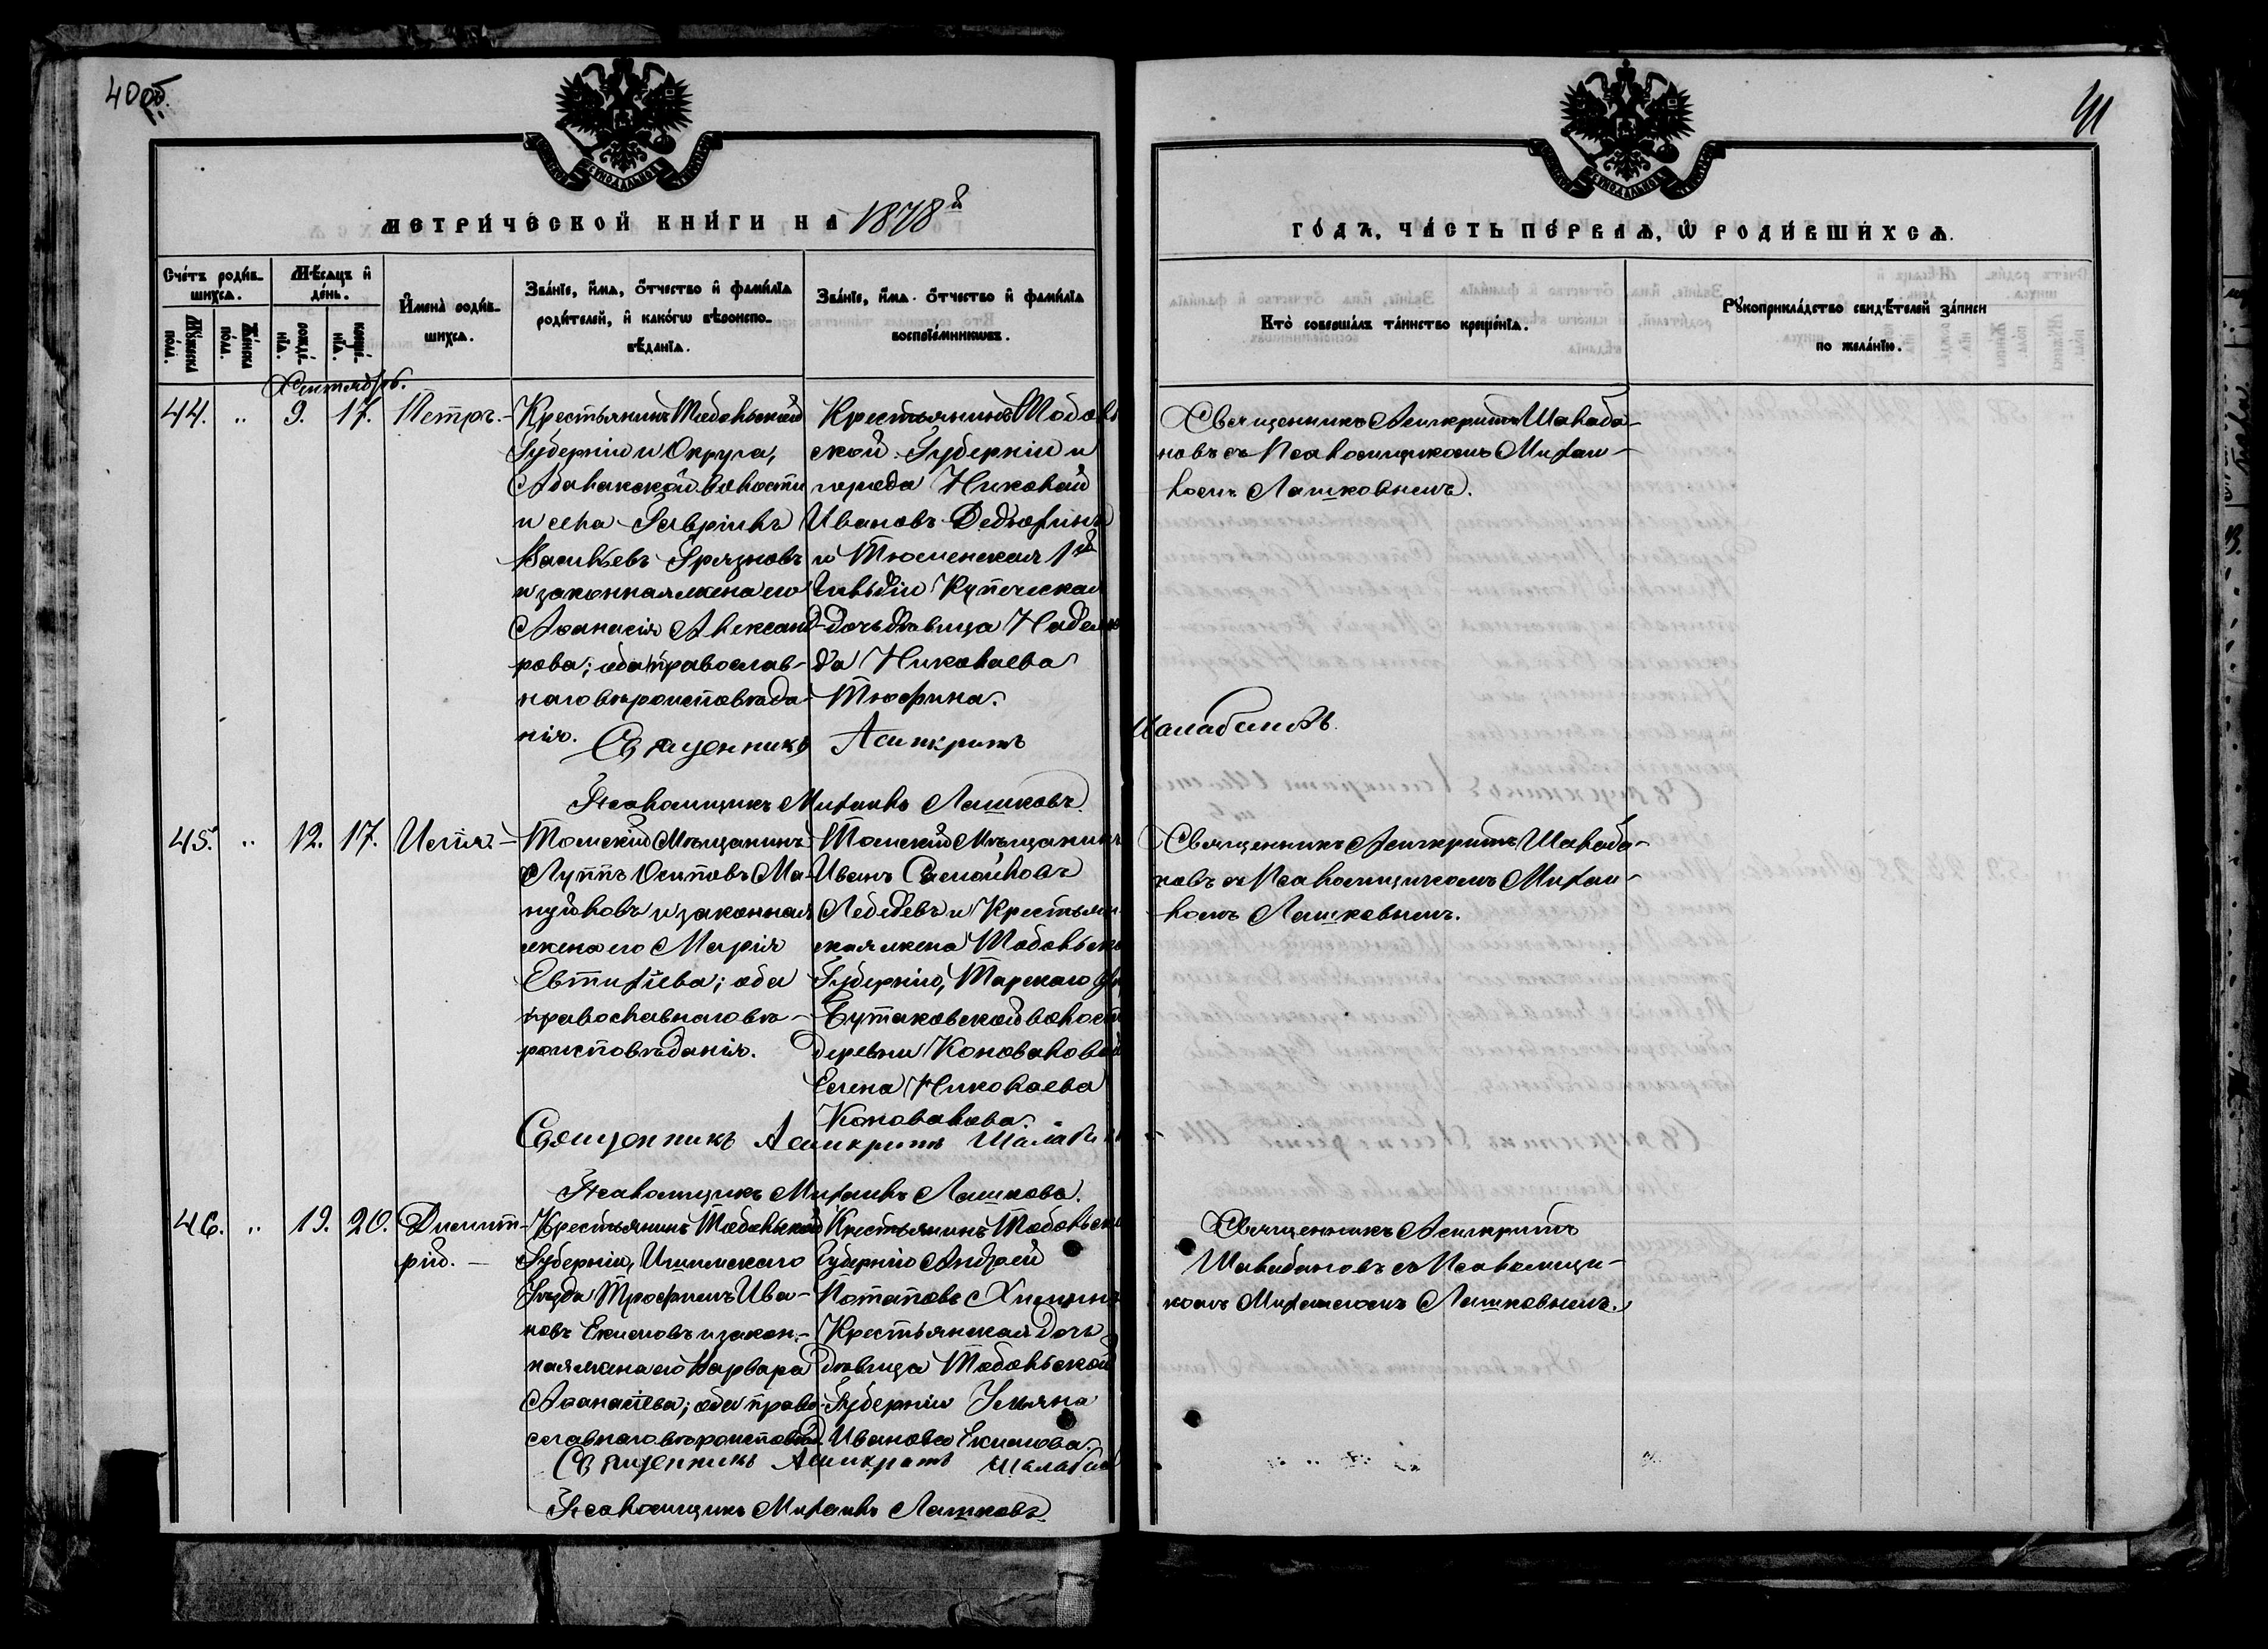 40 об.
41
МЕТРИ́ЧЕСКОЙ КНИ́ГИ НА 1878й
ГО́ДЪ, ЧА́СТЬ ПЕ́РВАѦ, Ѡ РОДИ́ВШИХСѦ.
Сче́тъ роди́в-
шихсѧ.
Мѣ́сѧцъ и҆
де́нь.
Мꙋ́жеска
по́ла.
Же́нска
по́ла.
рожде́-
нїѧ.
креще́-
нїѧ.
И҆мена̀ роди́в-
шихсѧ.
Зва́нїе, и҆́мѧ, ѻ҆́тчество и҆ фамилїѧ
роди́телей, и҆ како́гѡ вѣроиспо-
вѣ́данїѧ.
Зва́нїе, и҆́мѧ, ѻ҆́тчество и҆ фамилїѧ
воспрїе́мникѡвъ.
Кто̀ соверша́лъ та́инство креще́нїѧ.
Рꙋкоприкла́дство свидѣ́телей за́писи
по жела́нїю.
Сентябрь.
44. " 9. 17. Петръ.-
Крестьянинъ Тобольской
Губерніи и Округа,
Абалакской волости
и села Гавріилъ
Васильевъ Грязновъ
и законная жена его
Аѳанасія Александ-
рова; оба православ-
наго вѣроисповѣда-
нія.
Крестьянинъ Тоболь
ской Губерніи и
города Николай
Ивановъ Дедюхинъ
и Тюменская 1й
Гильдіи Купеческая
дочь дѣвица Надеж
да Николаева
Тюфина.
Священникъ Асинкритъ Шалабановъ.
Псаломщикъ Михаилъ Лашковъ.
Священникъ Асинкритъ Шалаба-
новъ съ Псаломщикомъ Михаи-
ломъ Лашковымъ.
45. " 12. 17. Илія.-
Томскій Мѣщанинъ
Луппъ Осиповъ Ма-
нуйловъ и законная
жена его Марія
Евтихіева; оба
православнаго вѣ-
роисповѣданія.
Томскій Мѣщанинъ
Иванъ Самойловъ
Лебедевъ и Крестьян
ская жена Тобольско
Губерніи, Тарскаго
Бутаковской волост
деревни Коноваловой
Елена Николаева
Коновалова.
Священникъ Асинкритъ Шалаб
Псаломщикъ Михаилъ Лашковъ.
Священникъ Асинкритъ Шалаба-
новъ съ Псаломщикомъ Михаи-
ломъ Лашковымъ.
46. " 19. 20. Димит-
рій. -
Крестьянинъ Тобольской
Губерніи, Ишимскаго
Уѣзда Трофимъ Ива-
новъ Екимовъ и закон-
ная жена его Варвара
Аѳанасіева; оба право-
славнаго вѣроисповѣд.
Крестьянинъ Тобольско
Губерніи Андрей
Потаповъ
Крестьянская дочь
дѣвица Тобольской
Губерніи Ульяна
Иванова Екимова.
Священникъ Асинкритъ Шалабан
Псаломщикъ Михаилъ Лашковъ.
Священникъ Асинкритъ
Шалабановъ съ Псаломщи-
комъ Михаиломъ Лашковымъ.